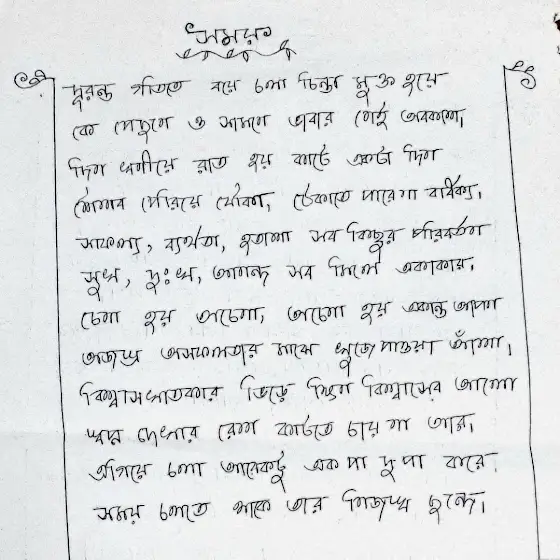 সময়
দূরন্ত গতিতে বয়ে চলা চিন্তা মুক্ত হয়ে
কে পেছনে ও সামনে ভাবার নেই অবকাশ,
দিন ঘনীয়ে রাত হয় কাটে একটা দিন
শৈশব পেরিয়ে যৌবন, ঠেকাতে পারেনা বার্ধক্য।
সাফল্য, ব্যর্থতা, হতাশা সব কিছুর পরিবর্তন
সুখ, দুঃখ, আনন্দ সব মিলে একাকার।
চেনা হয় অচেনা, অচেনা হয় একান্ত আপন
অজস্র অসফলতার মাঝে খুজে পাওয়া আঁশা।
বিশ্বাসঘাতকার ভিড়ে ক্ষিন বিশ্বাসের আলো
স্বপ্ন দেখার রেশ কাটতে চায় না আর।
এগিয়ে চলা আরেকটু এক পা দু পা করে
সময় চলতে থাকে তার নিজস্ব ছন্দে।